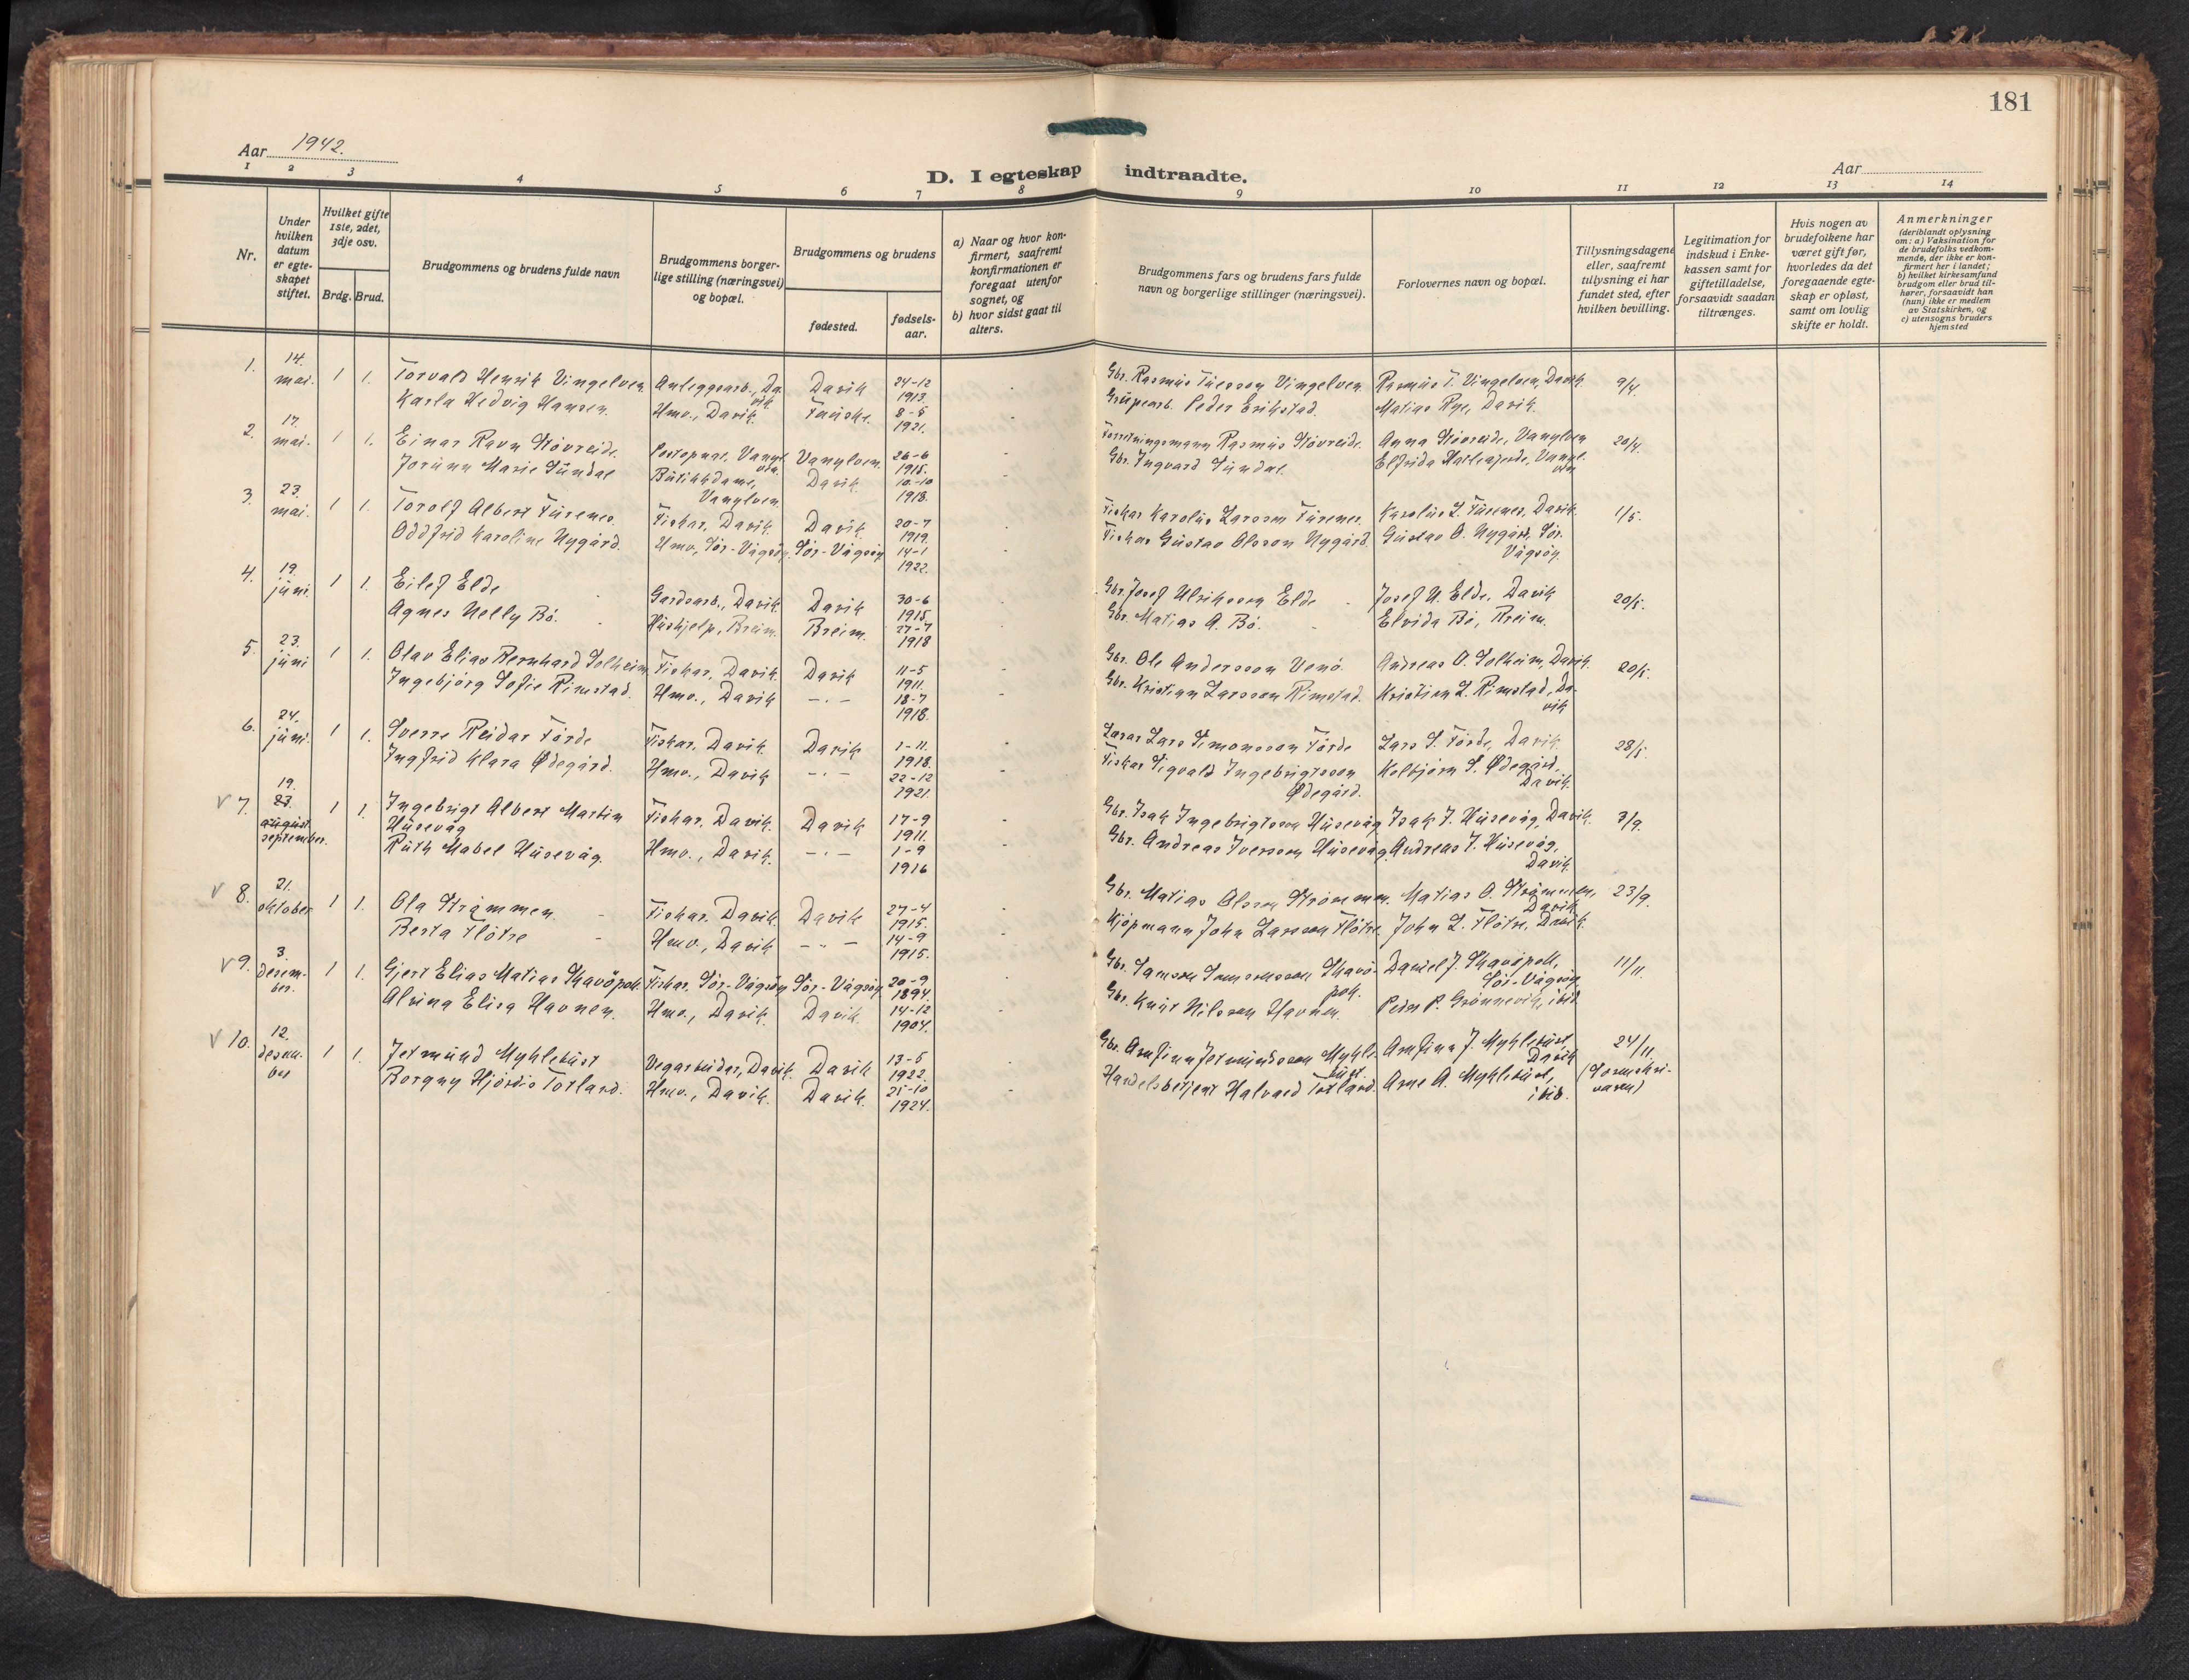 181
Aar 1942.
D. I egteskap indtraadte.
Aar
1 2 3 4 5 6 7 8 9 10 11 12 13 14
Nr.
Under hvilken datum er egte-skapet stiftet.
Hvilket gifte 1ste, 2det, 3dje osv.
Brdg. Brud.
Brudgommens og brudens fulde navn
Brudgommens borger-
lige stilling (næringsvei)
og bopæl.
Brudgommens og brudens
fødested.
fødsels-
aar.
a) Naar og hvor kon-
firmert, saafremt
konfirmationen er
foregaat utenfor
sognet, og
b) hvor sidst gaat til
alters.
Brudgommens fars og brudens fars fulde
navn og borgerlige stillinger (næringsvei).
Forlovernes navn og bopæl.
Tillysningsdagene
eller, saafremt
tillysning ei har
fundet sted, efter
hvilken bevilling.
Legitimation for
indskud i Enke-
kassen samt for
giftetilladelse,
forsaavidt saadan
tiltrænges.
Hvis nogen av
brudefolkene har
været gift før,
hvorledes da det
foregaaende egte-
skap er opløst,
samt om lovlig
skifte er holdt.
Anmerkninger
(deriblandt oplysning
om: a) Vaksination for
de brudefolks vedkom-
mende, der ikke er kon-
firmert her i landet;
b) hvilket kirkesamfund
brudgom eller brud til-
hører, forsaavidt han
(hun) ikke er medlem
av Statskirken, og
c) utensogns bruders
hjemsted
1. 14. mai. 1 1. Torvald Henrik Vingelven Anleggsarb., Davik Davik 24-12 1913. - Gbr. Rasmus Tuesson Vingelven. Rasmus T. Vingelven, Davik 9/4.
Karla Hedvig Hansen. Hmv., Davik. Fauske. 8-5 1921. Grupearb. Peder Erikstad. Matias Rye, Davik.
2. 17. mai. 1 1. Einar Ravn Støvreide. Postopnar. Vanylven. Vanylven. 26-6 1915. - Forretningsmann Rasmus Støvreide. Anna Støvreide, Vanylven 20/4.
Jorunn Marie Sundal Butikkdame, Vanylven. Davik. 10-10 1918. Gbr. Ingvard Sundal. Elfrida Harleajerde, Vanylven
3. 23. mai. 1 1. Torolf Albert Furenes. Fiskar, Davik. Davik 20-7 1919. - Fiskar Karolus Larsson Furenes. Karolus L. Furenes, Davik. 1/5.
Oddfrid Karoline Nygård. Hmv., Sør-Vågsøy. Sør-Vågsøy 14-1 1922. Fiskar Gustav Olsson Nygård. Gustav O. Nygård, Sør-Vågsøy.
4. 19. juni. 1 1. Eilef Elde Gardsarb., Davik Davik 30-6 1915. - Gbr. Josef Ulriksson Elde Josef U. Elde, Davik 20/5.
Agnes Nelly Bø. Hushjelp, Breim. Breim. 27-7 1918 Gbr. Matias A. Bø. Elvida Bø, Breim.
5. 23. juni 1 1. Olav Elias Bernhard Solheim. Fiskar, Davik. Davik 11-5 1911. Gbr. Ole Andersson Venø. Andreas O. Solheim, Davik. 20/5.
Ingebjørg Sofie Rimstad. Hmv., Davik -.- 18-7 1918. Gbr. Kristian Larsson Rimstad. Kristian L. Rimstad, Davik
6. 24. juni. 1 1. Sverre Reidar Førde Fiskar, Davik. Davik 1-11. 1918. - Lærar Lars Simonsson Førde Lars S. Førde, Davik. 28/5.
Ingfrid Klara Ødegård. Hmv., Davik -.- 22-12 1921. Fiskar Sigvald Ingebrigtsson Ødegård. Kolbjørn S. Ødegård, Davik.
V 7. 19. 23. august. september. 1 1. Ingebrigt Albert Martin Husevåg Fiskar, Davik. Davik 17-9 1911. Gbr. Isak Ingebrigtsson Husevåg Isak I. Husevåg, Davik. 3/9.
Ruth Mabel Husevåg. Hmv., Davik. -.- 1-9 1916 Gbr. Andreas Iversson Husevåg. Andreas I. Husevåg, Davik.
V 8. 21. oktober 1 1. Ola Strømmen Fiskar. Davik. Davik 27-4 1915. Gbr. Matias Olsson Strømmen. Matias O. Strømmen, Davik. 23/9.
Berta Fløtre Hmv., Davik -.- 14-9 1915. Kjøpmann John Larsson Fløtre. John L. Fløtre, Davik.
V 9. 3. desem-ber. 1 1. Gjert Elias Matias Skavøpoll. Fiskar, Sør-Vågsøy Sør-Vågsøy 20-9 1894. Gbr. Samson Samsonsson Skavøpoll. Daniel J. Skavøpoll, Sør-Vågsøy 11/11.
Alvina Elisa Havnen. Hmv., Davik. Davik. 14-12 1904. Gbr. Knut Nilsson Havnen. Peder P. Grønnevik, ibid.
V 10. 12. desem-ber 1 1. Jetmund Myklebust Vegarbeidar, Davik. Davik 13-5 1922. Gbr. Arnfinn Jetmundsson Myklebust. Arnfinn J. Myklebust, Davik 24/11.
Borgny Hjørdis Totland. Hmv., Davik. Davik. 25-10 1924. Handelsbetjent Halvard Totland. Arne A. Myklebust, ibid. (Sorenskri-varen)